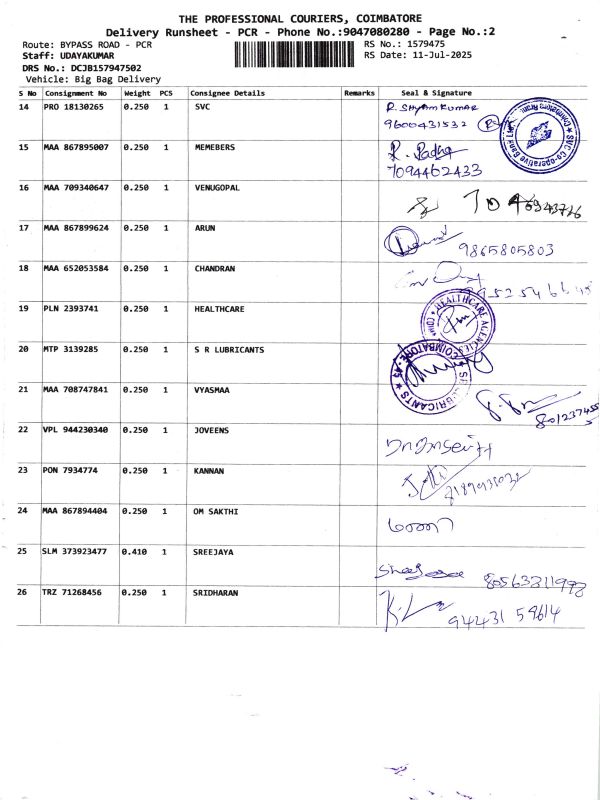 THE PROFESSIONAL COURIERS, COIMBATORE
Delivery Runsheet - PCR - Phone No.:9047080280 - Page No.:2
Route: BYPASS ROAD - PCR RS No.: 1579475
Staff: UDAYAKUMAR RS Date: 11-Jul-2025
DRS No.: DCJB157947502
Vehicle: Big Bag Delivery
S No Consignment No Weight PCS Consignee Details Remarks Seal & Signature
14 PRO 18130265 0.250 1 SVC R. SHYAM KUMAR
9600431532
SVC Co-operative Bank Ltd.
15 MAA 867895007 0.250 1 MEMEBERS R. Radha
7094462433
16 MAA 709340647 0.250 1 VENUGOPAL
17 MAA 867899624 0.250 1 ARUN
9865805803
18 MAA 652053584 0.250 1 CHANDRAN
19 PLN 2393741 0.250 1 HEALTHCARE
HEALTHCARE AGENCIES
20 MTP 3139285 0.250 1 S R LUBRICANTS
COIMBATORE-45 LUBRICANTS
21 MAA 708747841 0.250 1 VYASMAA
22 VPL 944230340 0.250 1 JOVEENS
23 PON 7934774 0.250 1 KANNAN
24 MAA 867894404 0.250 1 OM SAKTHI
25 SLM 373923477 0.410 1 SREEJAYA
8056321199
26 TRZ 71268456 0.250 1 SRIDHARAN
94431 59614